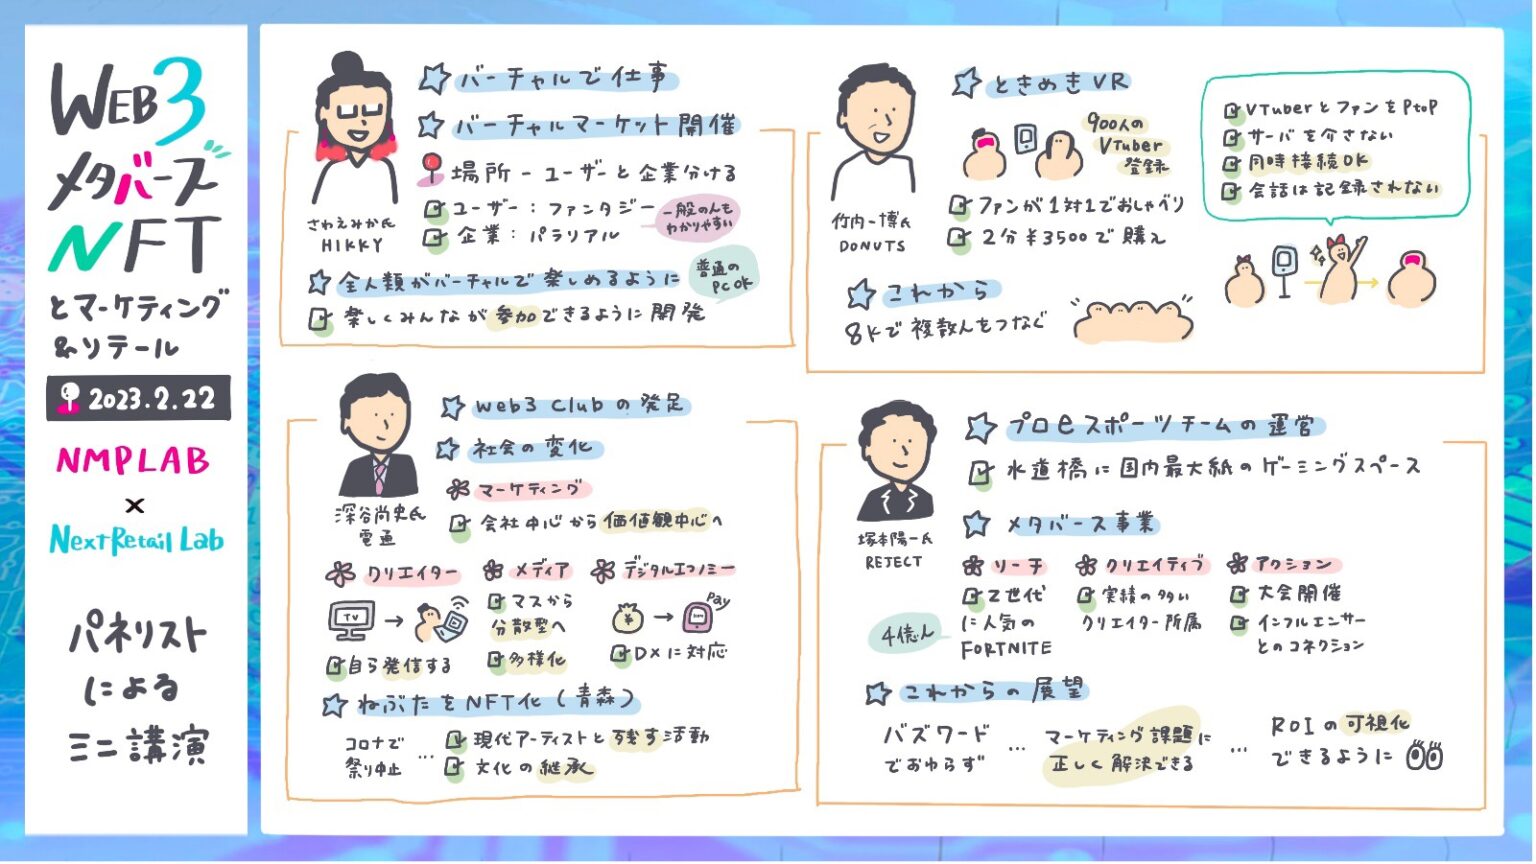 WEB3
メタバーズ
NFT
とマーケティング
&リテール
2023.2.22
NMPLAB
×
NextRetail Lab
パネリスト
による
ミニ講演
さわえみか氏
HIKKY
バーチャルで仕事
バーチャルマーケット開催
場所ーユーザーと企業分ける
ユーザー:ファンタジー
企業:パラリアル
一般の人も
わかりやすい
全人類がバーチャルで楽しめるように
普通の
PCOK
楽しくみんなが参加できるように開発
竹内一博氏
DONUTS
ときめきVR
900人の
VTuber
登録
ファンが1対1でおしゃべり
2分¥3500で購入
これから
8Kで複数人をつなぐ
VTuberとファンをPtoP
サーバを介さない
同時接続OK
会話は記録されない
深谷尚史氏
電通
Web3 Clubの発足
社会の変化
マーケティング
会社中心から価値観中心へ
クリエイター
TV
自ら発信する
メディア
マスから
分散型へ
多様化
デジタルエコノミー
¥
Pay
DXに対応
ねぶたをNFT化(青森)
コロナで
祭り中止
...
現代アーティストと残す活動
文化の継承
塚本陽一氏
REJECT
プロeスポーツチームの運営
水道橋に国内最大紙のゲーミングスペース
メタバース事業
リーチ
Z世代
に人気の
FORTNITE
4億人
クリエイティブ
実績の多い
クリエイター所属
アクション
大会開催
インフルエンサー
とのコネクション
これからの展望
バズワード
でおわらず
...
マーケティング課題に
正しく解決できる
...
ROIの可視化
できるように